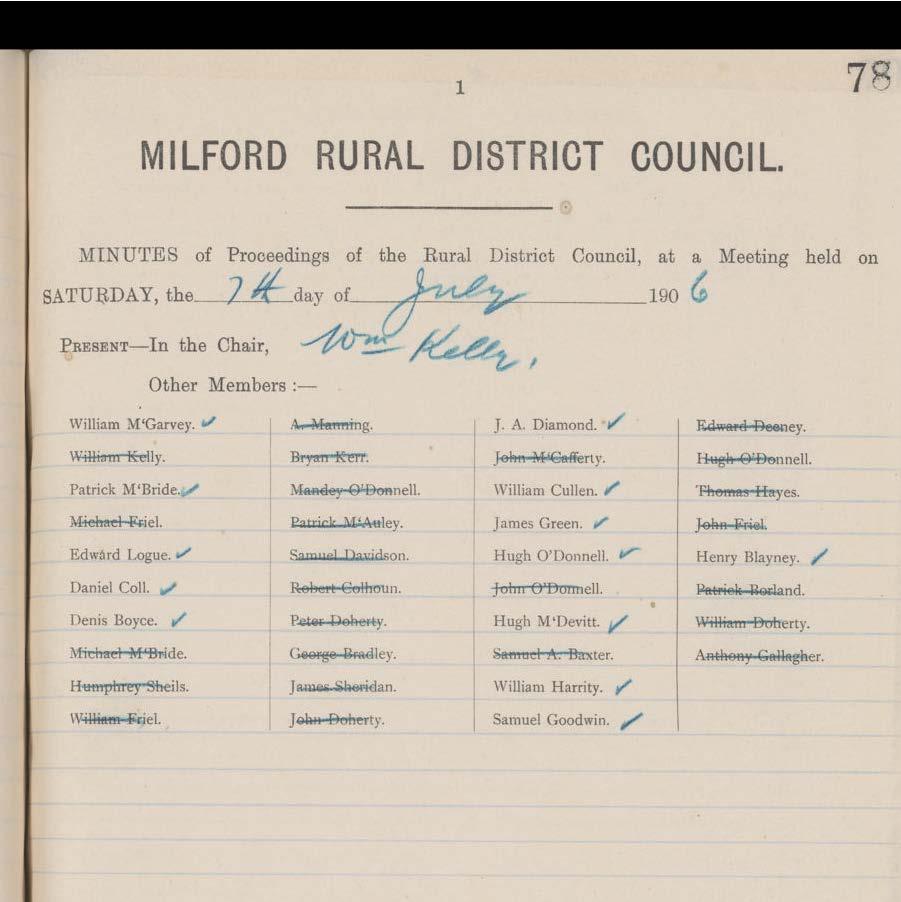 78
1
MILFORD RURAL DISTRICT COUNCIL.
MINUTES of Proceedings of the Rural District Council, at a Meeting held on
SATURDAY, the 7th day of July 1906
PRESENT—In the Chair, Wm Kelly.
Other Members :—
William M‘Garvey. ✓
William Kelly.
Patrick M‘Bride. ✓
Michael Friel.
Edward Logue. ✓
Daniel Coll. ✓
Denis Boyce. ✓
Michael M‘Bride.
Humphrey Sheils.
William Friel.
A. Manning.
Bryan Kerr.
Mandey O’Donnell.
Patrick M‘Auley.
Samuel Davidson.
Robert Colhoun.
Peter Doherty.
George Bradley.
James Sheridan.
John Doherty.
J. A. Diamond. ✓
John M‘Cafferty.
William Cullen. ✓
James Green. ✓
Hugh O’Donnell. ✓
John O’Donnell.
Hugh M‘Devitt. ✓
Samuel A. Baxter.
William Harrity. ✓
Samuel Goodwin. ✓
Edward Deeney.
Hugh O’Donnell.
Thomas Hayes.
John Friel.
Henry Blayney. ✓
Patrick Borland.
William Doherty.
Anthony Gallagher.